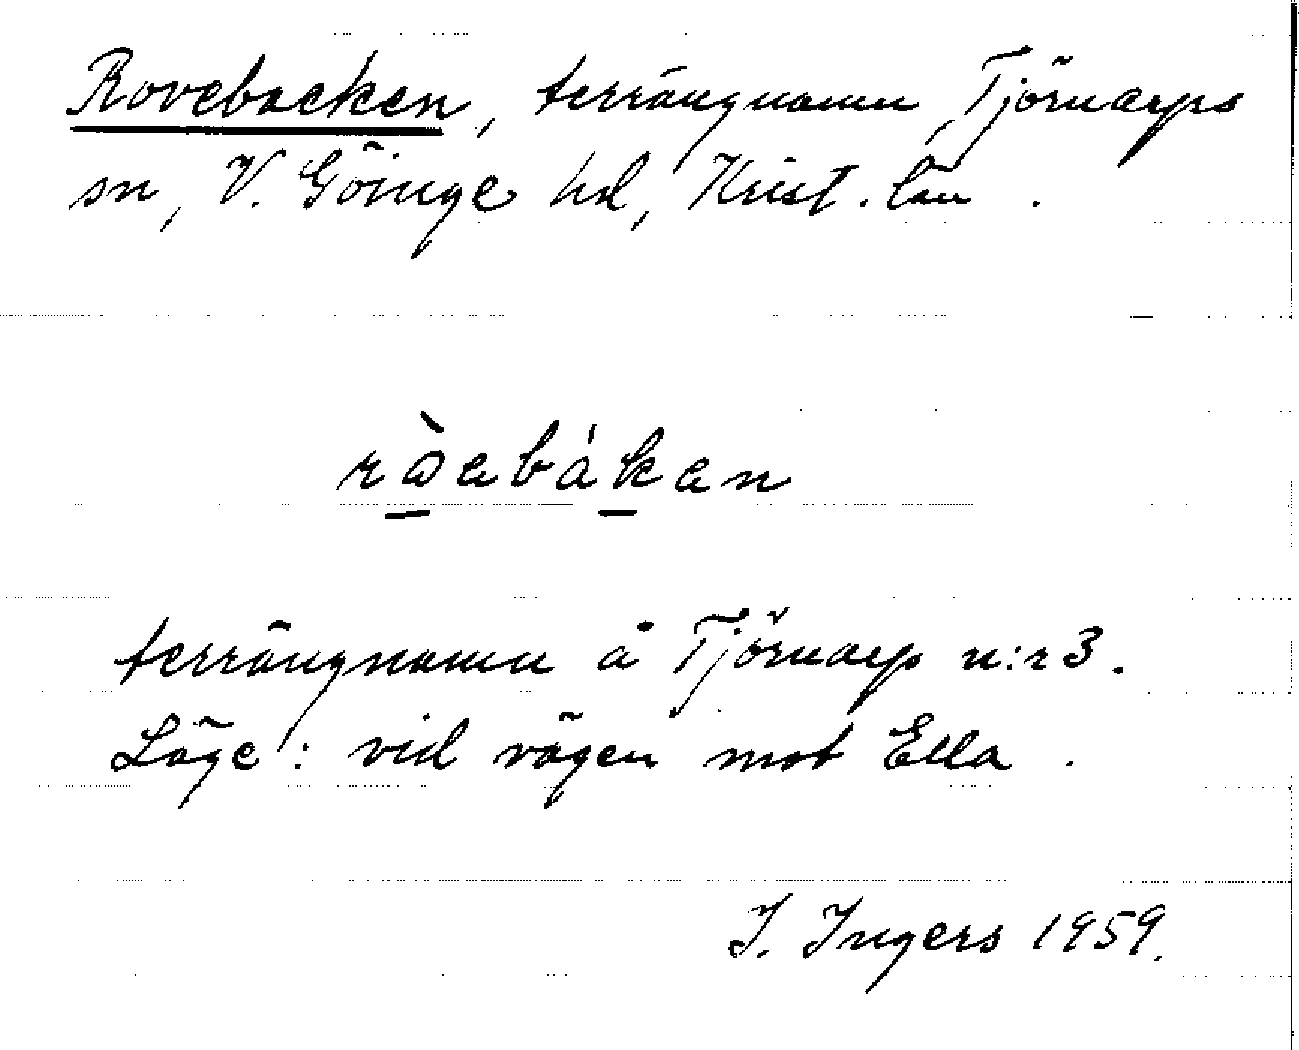 Rovebacken, terrängnamn, Tjörnarps
sn, V. Göinge hd, Krist. län.
terrängnamn å Tjörnarp n:r 3.
Läge: vid vägen mot Ella.
I. Ingers 1959.